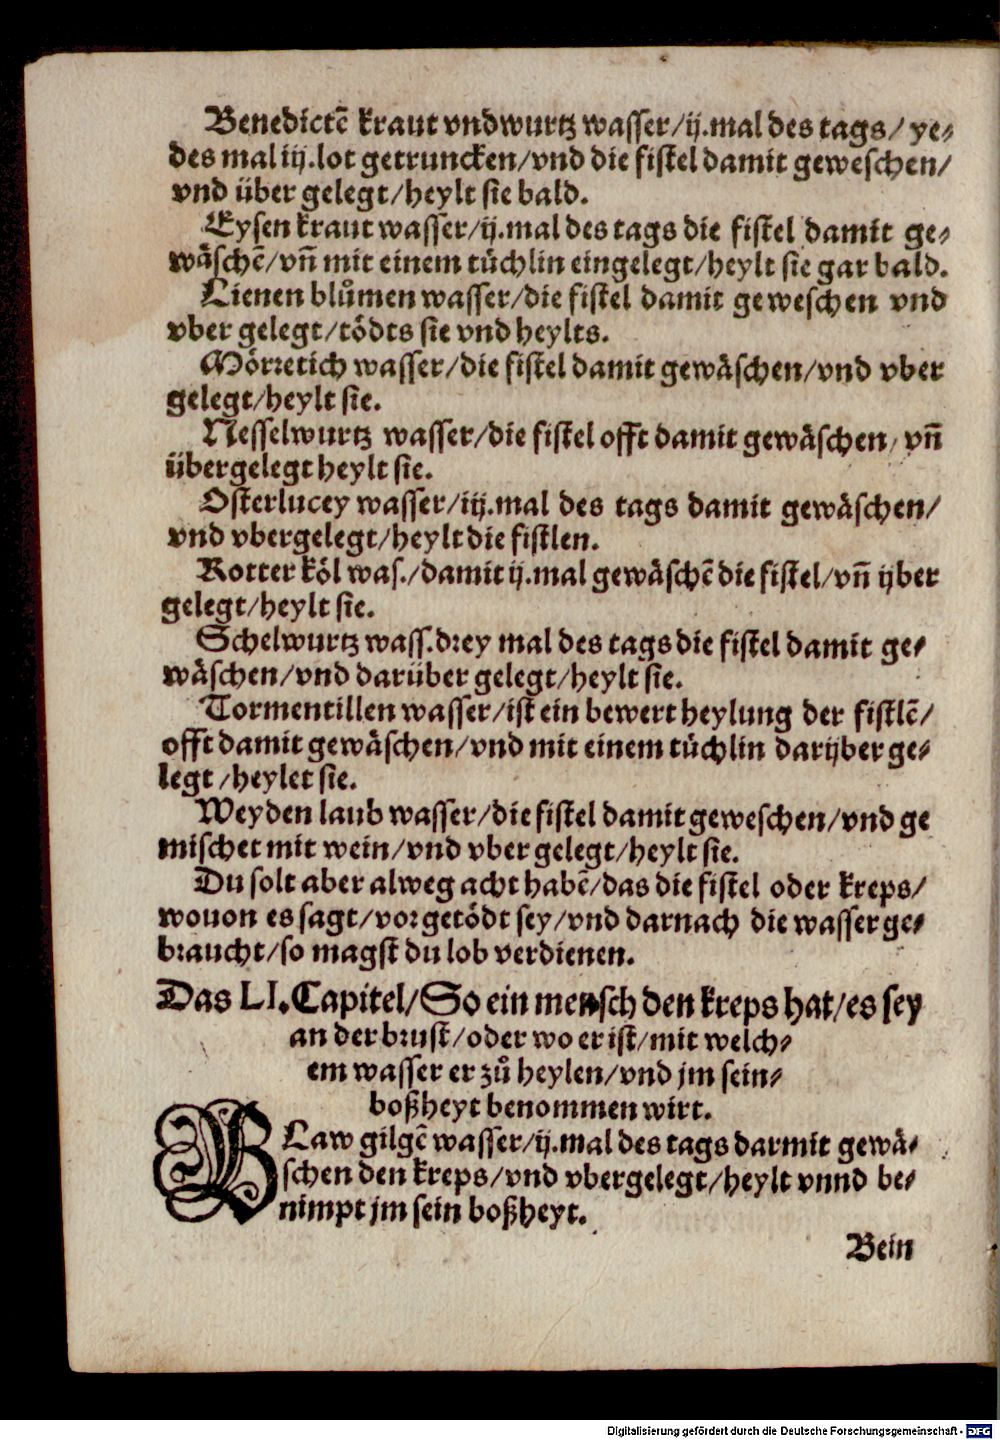 Benedictẽ kraut vndwurtz wasser/ij.mal des tags/ ye⸗
des mal iij.lot getruncken/vnd die fistel damit geweschen/
vnd über gelegt/heylt sie bald.
Eysen kraut wasser/ij.mal des tags die fistel damit ge⸗
wäschẽ/vñ mit einem tůchlin eingelegt/heylt sie gar bald.
Lienen blůmen wasser/die fistel damit geweschen vnd
vber gelegt/tödts sie vnd heylts.
Mörretich wasser/die fistel damit gewäschen/vnd vber
gelegt/heylt sie.
Nesselwurtz wasser/die fistel offt damit gewäschen/vñ
übergelegt heylt sie.
Osterlucey wasser/iij.mal des tags damit gewäschen/
vnd vbergelegt/heylt die fistlen.
Rotter köl was./damit ij.mal gewäschẽ die fistel/vñ ijber
gelegt/heylt sie.
Schelwurtz wass.drey mal des tags die fistel damit ge⸗
wäschen/vnd darüber gelegt/heylt sie.
Tormentillen wasser/ist ein bewert heylung der fistlẽ/
offt damit gewäschen/vnd mit einem tůchlin darijber ge⸗
legt /heylet sie.
Weyden laub wasser/die fistel damit geweschen/vnd ge
mischet mit wein/vnd vber gelegt/heylt sie.
Du solt aber alweg acht habẽ/das die fistel oder kreps/
wouon es sagt/vor getödt sey/vnd darnach die wasser ge⸗
braucht/so magst du lob verdienen.
Das LI.Capitel/So ein mensch den kreps hat/es sey
an der brust/oder wo er ist/mit welch⸗
em wasser er zů heylen/vnd jm sein⸗
boßheyt benommen wirt.
BLaw gilgẽ wasser/ij.mal des tags darmit gewä⸗
schen den kreps/vnd vbergelegt/heylt vnnd be⸗
nimpt jm sein boßheyt.
Bein
Digitalisierung gefördert durch die Deutsche Forschungsgemeinschaft - DFG